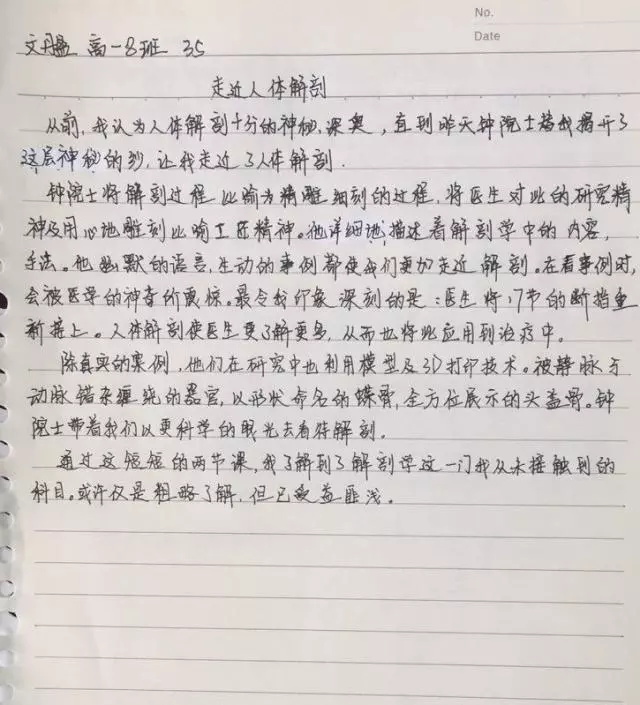 No.
Date
高一8班 35
走近人体解剖
从前，我认为人体解剖十分的神秘、深奥，直到昨天钟院士替我揭开了
这层神秘的纱，让我走近了人体解剖.
钟院士将解剖过程比喻为精雕细刻的过程，将医生对此的研究精
神及用心地雕刻比喻工匠精神。他详细地描述着解剖学中的内容，
手法。他幽默的语言，生动的事例都使我们更加走近解剖。在看事例时，
会被医学的神奇所震惊。最令我印象深刻的是：医生将17节的断指重
新接上。人体解剖使医生更了解更多，从而也将此应用到治疗中。
除真实的案例，他们在研究中也利用模型及3D打印技术。被静脉与
动脉错杂缠绕的器官，以形状命名的蝶骨，全方位展示的头盖骨。钟
院士带着我们以更科学的眼光去看待解剖.
通过这短短的两节课，我了解到了解剖学这一门我从未接触到的
科目。或许仅是粗略了解，但已受益匪浅。